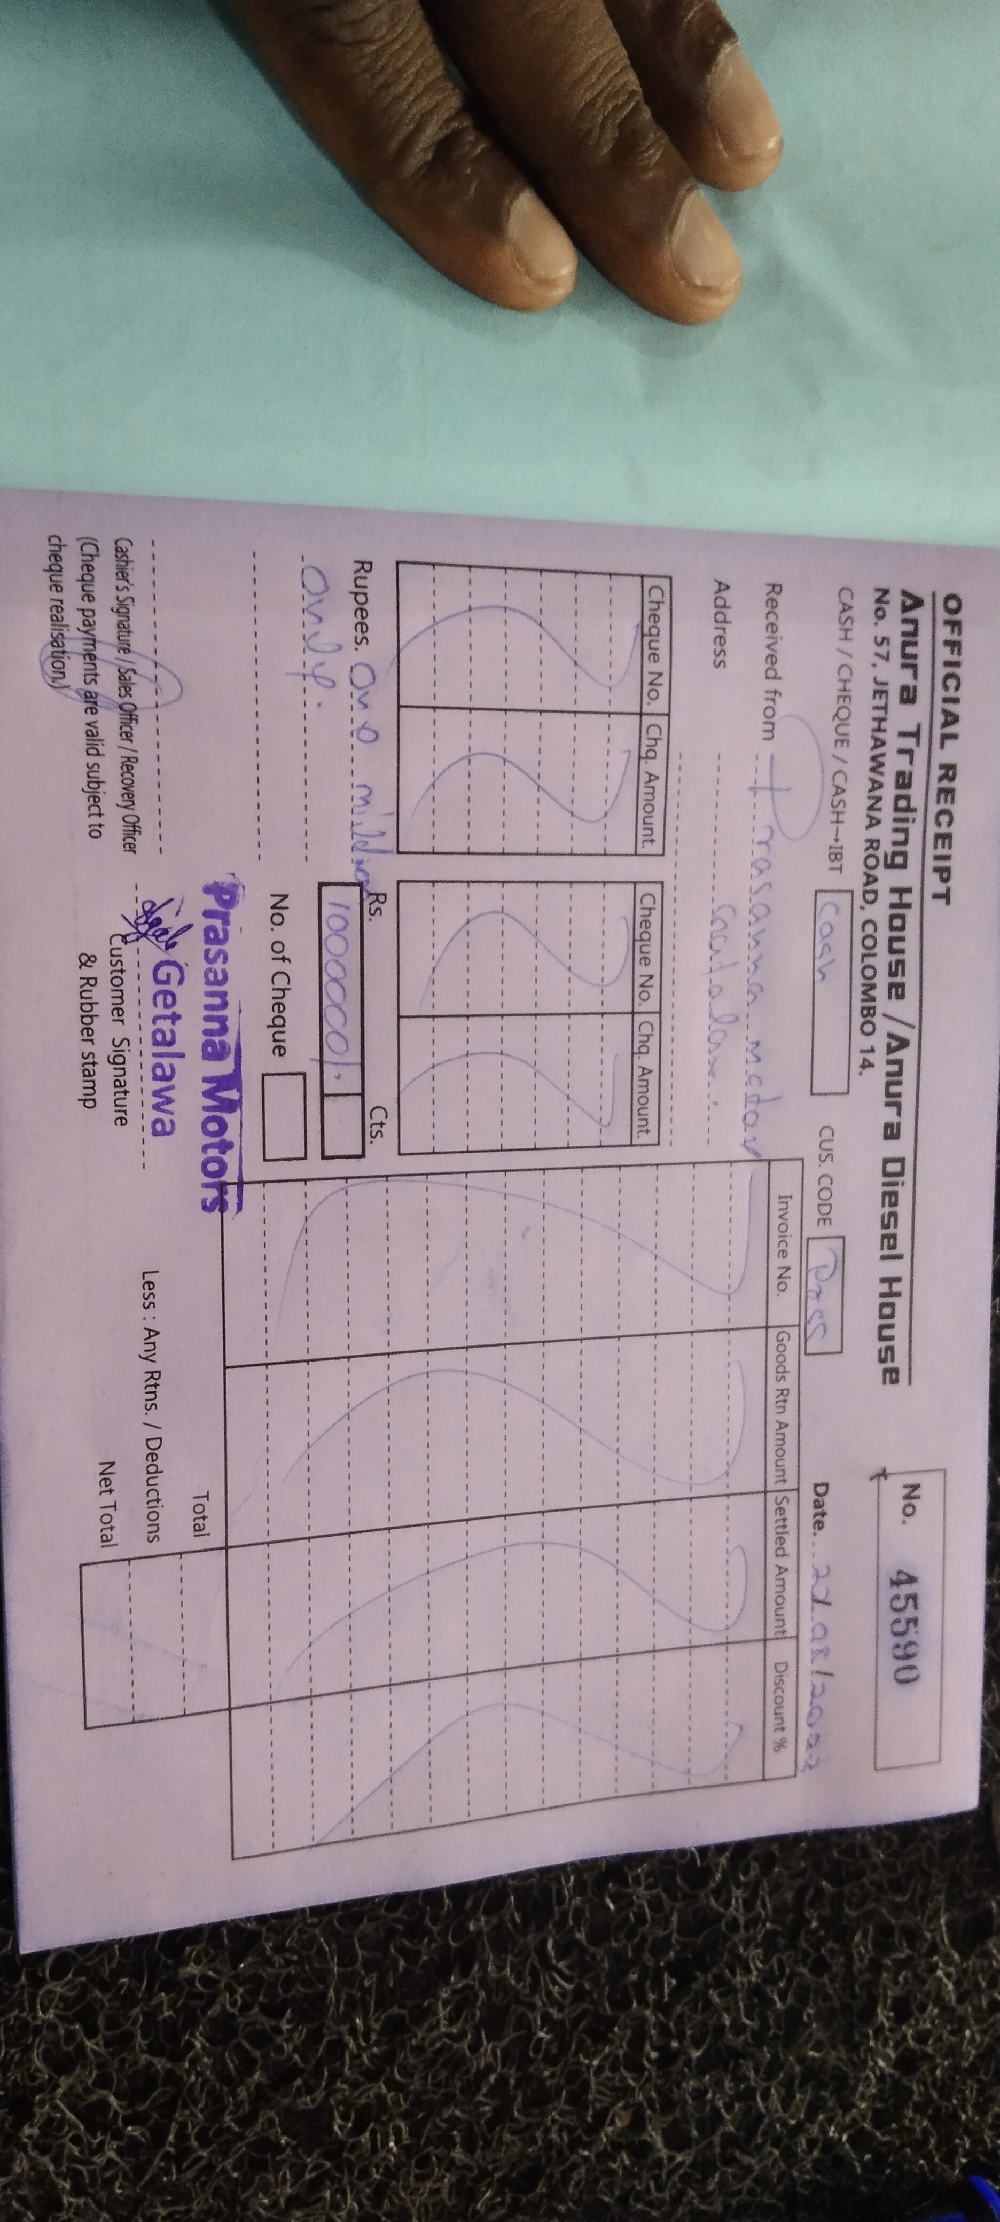 OFFICIAL RECEIPT
Anura Trading House / Anura Diesel House
No. 57, JETHAWANA ROAD, COLOMBO 14.
No. 45590
CASH / CHEQUE / CASH→IBT cash CUS. CODE
Date.
Received from Prasanna motor
Address
Cheque No. Chq. Amount. Cheque No. Chq. Amount.
Invoice No. Goods Rtn Amount Settled Amount Discount %
Rupees. One million
only.
Rs. Cts.
1000000/.
No. of Cheque
Prasanna Motors
Getalawa
Cashier's Signature / Sales Officer / Recovery Officer
(Cheque payments are valid subject to
cheque realisation)
Customer Signature
& Rubber stamp
Total
Less : Any Rtns. / Deductions
Net Total